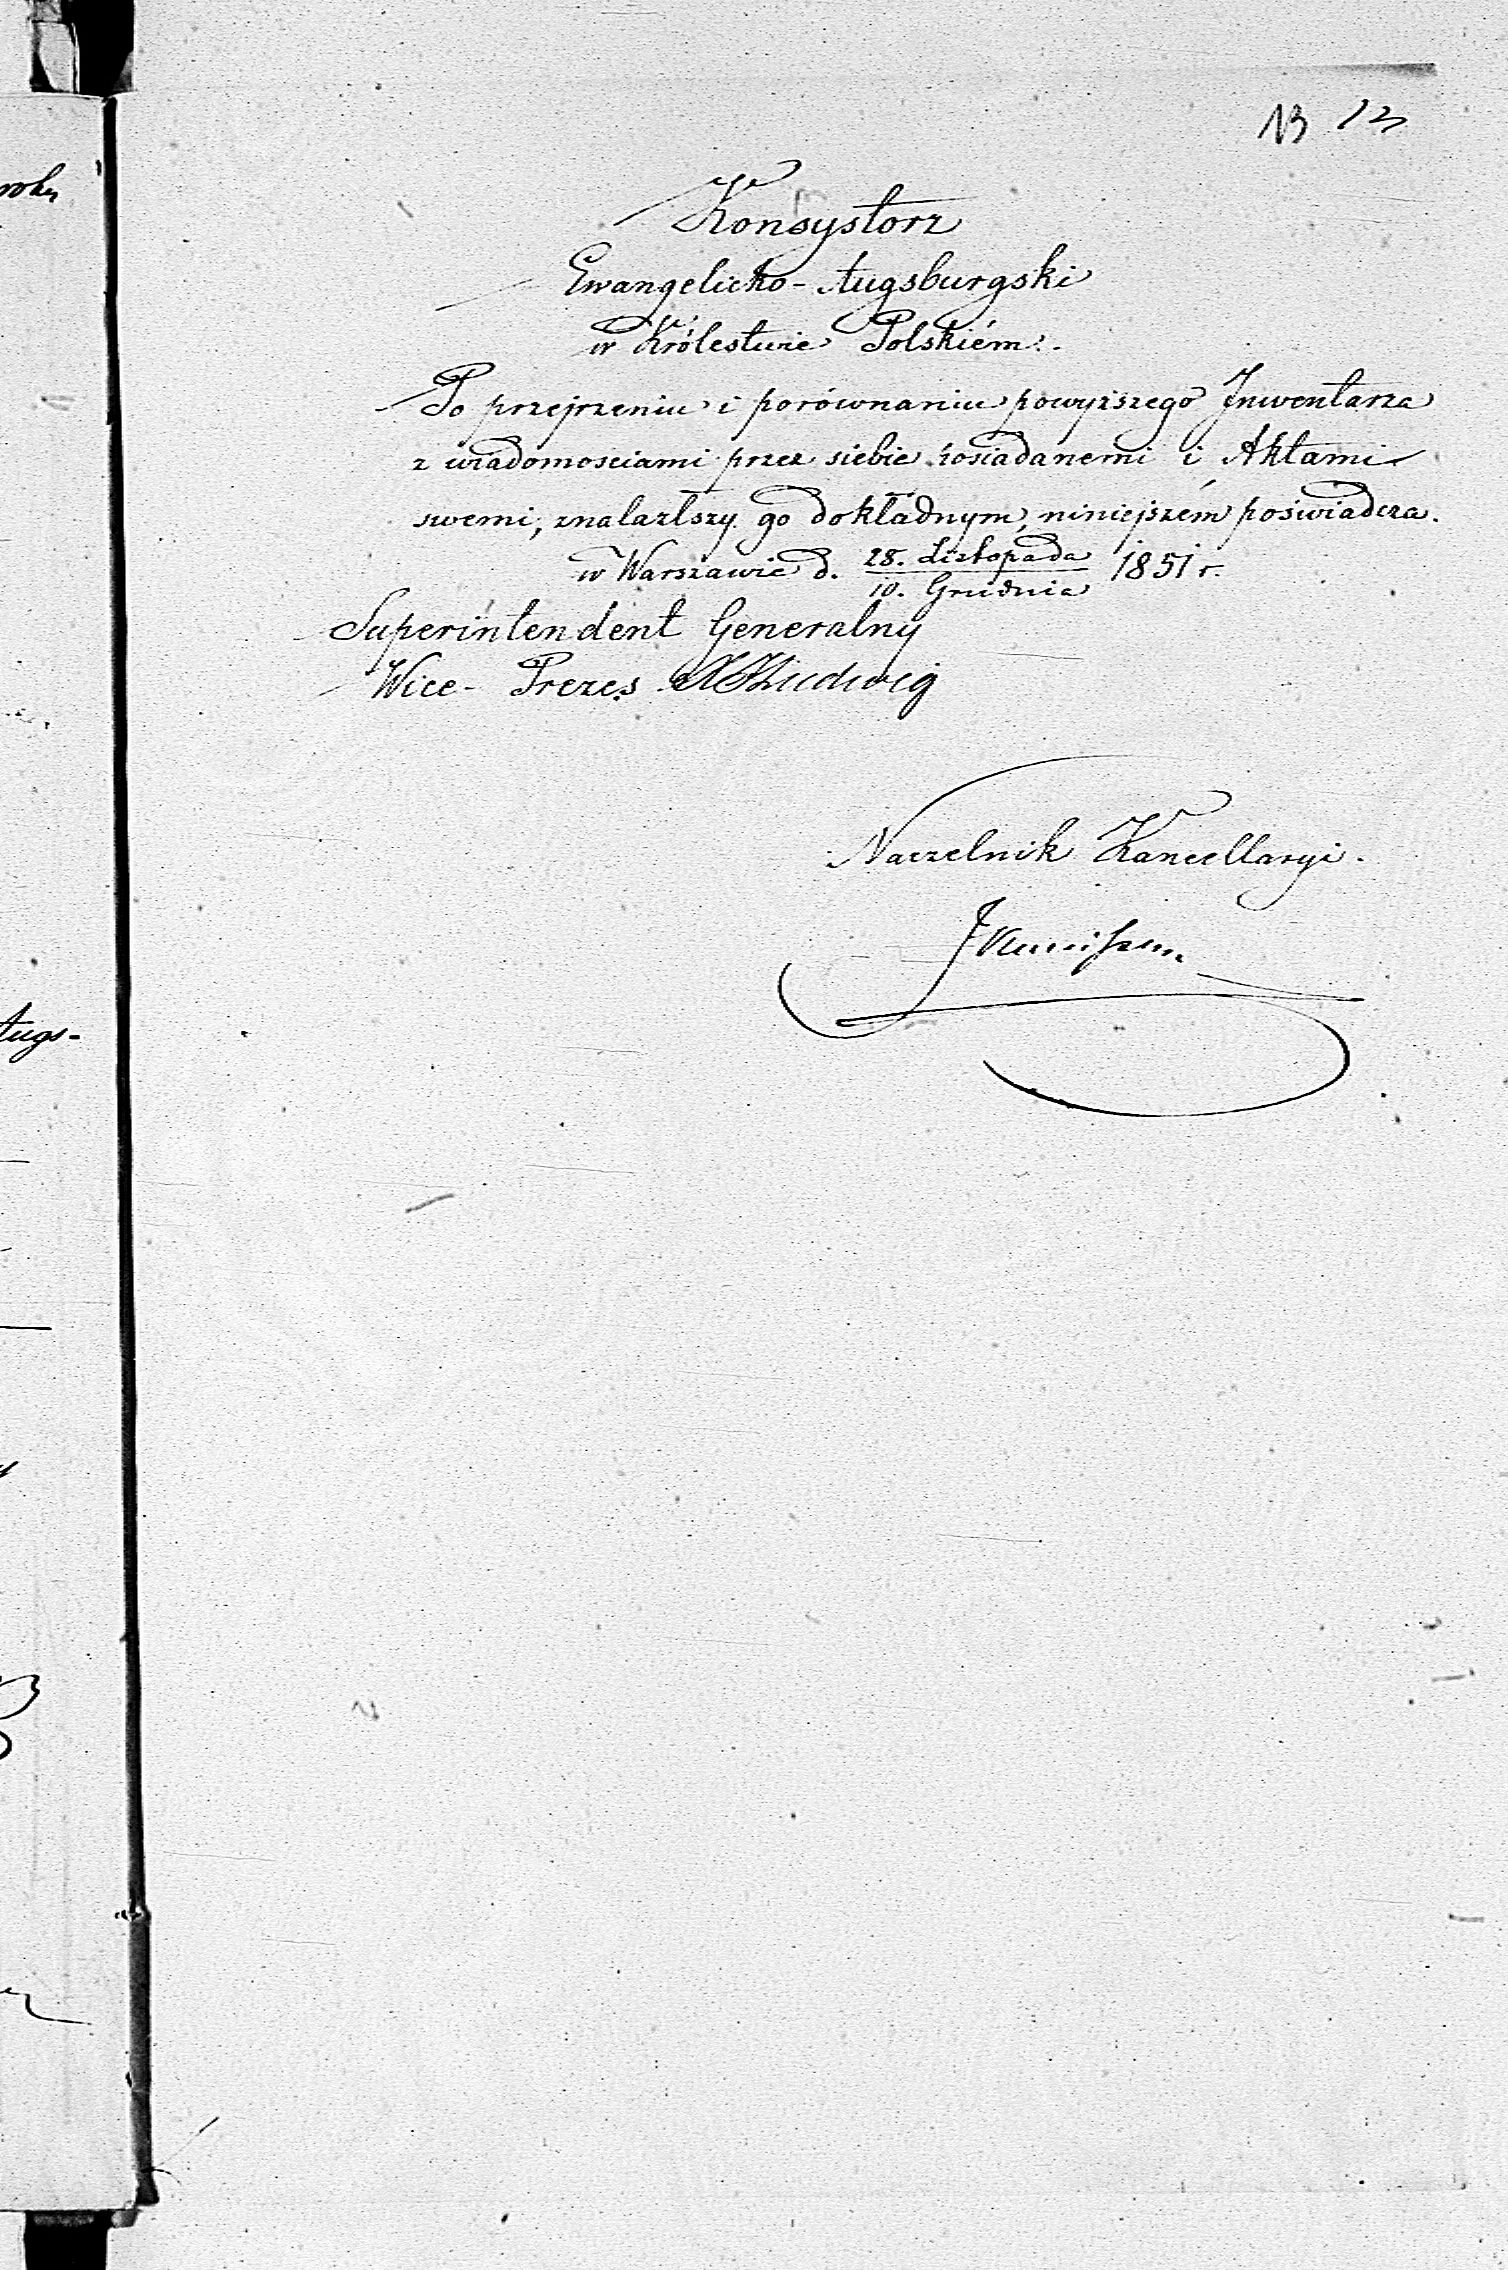 13 13
Konsystorz
Ewangelicko-Augsburgski
w Królestwie Polskiém.
Po przejrzeniu i porównaniu powyższego Inwentarza
z wiadomosciami przez siebie posiadanemi i Aktami
swemi, znalazłszy go dokładnym, niniejszém poświadcza.
w Warszawie d. 28. Listopada / 10. Grudnia 1851 r.
Superintendent Generalny
Wice-Prezes Ludwig
Naczelnik Kancellaryi.
roku
Augs-